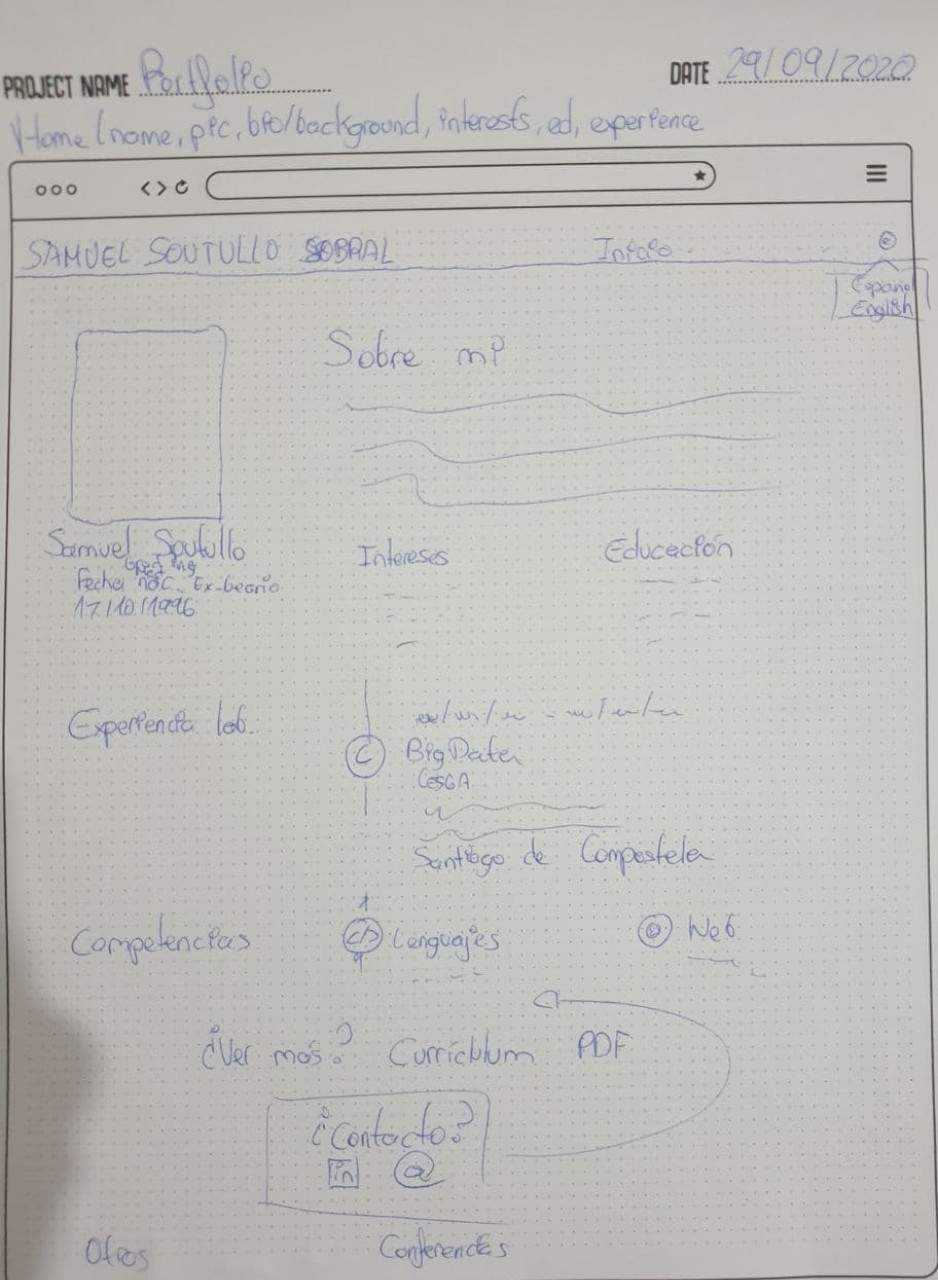 PROJECT NAME Portfolio DATE 29/09/2020
Home (name, pic, bio/background, interests, ed, experience
SAMUEL SOUTULLO SOBRAL Inicio
Español
English
Sobre mi
Samuel Soutullo
Fecha nac. Ex-becario
17/10/1996
Intereses Educación
Experiencia lab.
C Big Data
CESGA
Santiago de Compostela
Competencias </> Lenguajes Web
¿Ver más? Currículum PDF
¿Contacto?
in @
Otros Conferencias